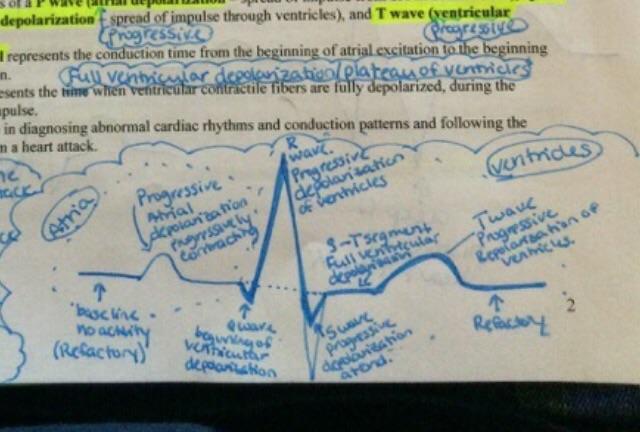 s of a P wave (atrial depolarization
depolarization spread of impulse through ventricles), and T wave (ventricular
Progressive
Progressive
l represents the conduction time from the beginning of atrial excitation to the beginning
n.
Full ventricular depolarization/plateau of ventricles
esents the time when ventricular contractile fibers are fully depolarized, during the
pulse.
in diagnosing abnormal cardiac rhythms and conduction patterns and following the
n a heart attack.
R
wave.
Progressive
depolarization
of ventricles
ventricles
Atria
Progressive
Atrial
depolarization
progressively
contracting
S-T segment
Full ventricular
depolarization
T wave
Progressive
Repolarization of
ventricles.
baseline
no activity
(Refactory)
Q wave
beginning of
ventricular
depolarization
S wave
progressive
depolarization
at end.
Refactory
2